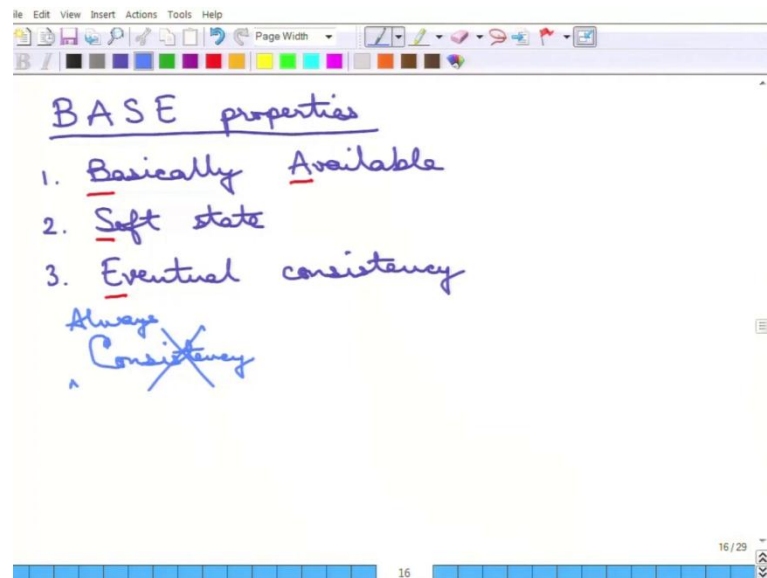 ile Edit View Insert Actions Tools Help
Page Width
B I
BASE properties
1. Basically Available
2. Soft state
3. Eventual consistency
Always
Consistency
^
16/29
16